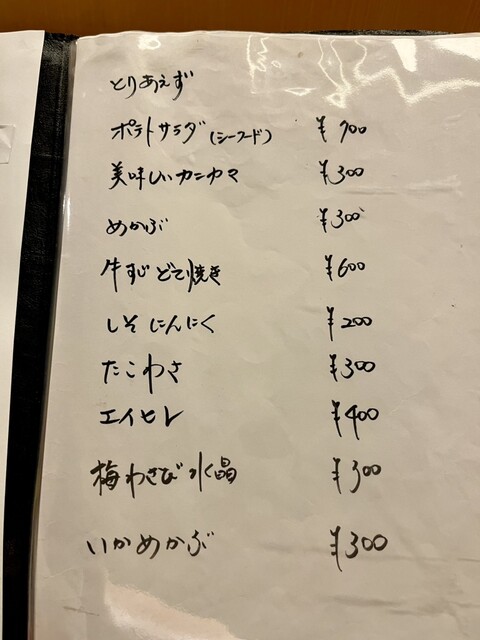 とりあえず
ポテトサラダ(シーフード) ¥900
美味しいカニカマ ¥300
めかぶ ¥300
牛すじどて焼き ¥600
しそにんにく ¥200
たこわさ ¥300
エイヒレ ¥400
梅わさび水晶 ¥300
いかめかぶ ¥300